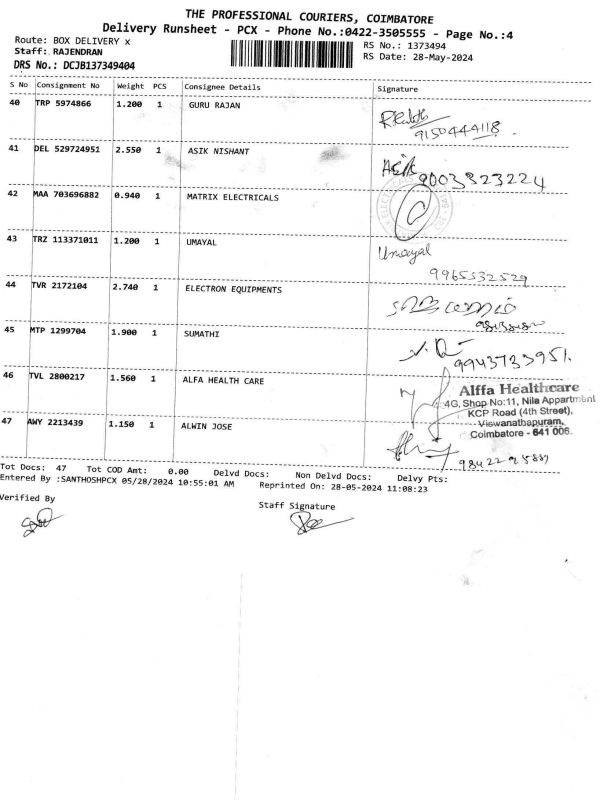 THE PROFESSIONAL COURIERS, COIMBATORE
Delivery Runsheet - PCX - Phone No.:0422-3505555 - Page No.:4
Route: BOX DELIVERY x
RS No.: 1373494
Staff: RAJENDRAN
RS Date: 28-May-2024
DRS No.: DCJB137349404
S No Consignment No Weight PCS Consignee Details Signature
40 TRP 5974866 1.200 1 GURU RAJAN
9150444118
41 DEL 529724951 2.550 1 ASIK NISHANT
Asik 9003823224
42 MAA 703696882 0.940 1 MATRIX ELECTRICALS
43 TRZ 113371011 1.200 1 UMAYAL
Umayal
9965532529
44 TVR 2172104 2.740 1 ELECTRON EQUIPMENTS
45 MTP 1299704 1.900 1 SUMATHI
9943733951.
46 TVL 2800217 1.560 1 ALFA HEALTH CARE
Alffa Healthcare
4G, Shop No:11, Nila Appartment
KCP Road (4th Street),
Viswanathapuram,
Coimbatore - 641 006.
47 AWY 2213439 1.150 1 ALWIN JOSE
Tot Docs: 47 Tot COD Amt: 0.00 Delvd Docs: Non Delvd Docs: Delvy Pts:
Entered By :SANTHOSHPCX 05/28/2024 10:55:01 AM Reprinted On: 28-05-2024 11:08:23
Verified By
Staff Signature